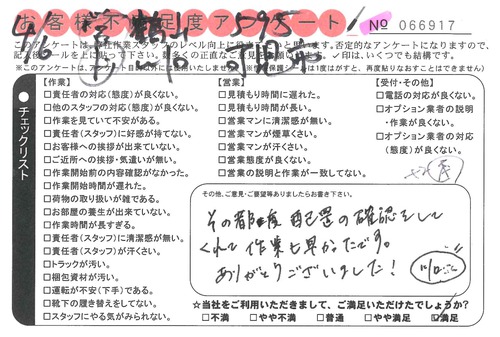 お客様不満足度アンケート!
No 066917
4/6
595
このアンケートは、弊社作業スタッフのレベル向上に役立てたいと思います。否定的なアンケートになりますので、
【作業】
□責任者の対応(態度)が良くない。
□他のスタッフの対応(態度)が良くない。
□作業を見ていて不安がある。
□責任者(スタッフ)に好感が持てない。
□お客様への挨拶が出来ていない。
□ご近所への挨拶・気遣いが無い。
□作業開始前の内容確認がなかった。
□作業開始時間が遅れた。
□荷物の取り扱いが雑である。
□お部屋の養生が出来ていない。
□作業時間が長すぎる。
□責任者(スタッフ)に清潔感が無い。
□責任者(スタッフ)が汗くさい。
□トラックが汚い。
□梱包資材が汚い。
□運転が不安(下手)である。
□靴下の履き替えをしてない。
□スタッフにやる気がみられない。
【営業】
□見積もり時間に遅れた。
□見積もり時間が長い。
□営業マンに清潔感が無い。
□営業マンが煙草くさい。
□営業マンが汗くさい。
□営業態度が良くない。
□営業の説明と作業が一致してない。
【受付・その他】
□電話の対応が良くない。
□オプション業者の説明
・作業が良くない。
□オプション業者の対応
(態度)が良くない。
チェックリスト
その他、ご意見・ご要望等ありましたらお書き下さい。
その都度 配置の確認をして
くれて作業も早かったです。
ありがとうございました!
☆当社をご利用いただきまして、ご満足いただけたでしょうか?
□不満 □やや不満 □普通 □やや満足 ☑満足